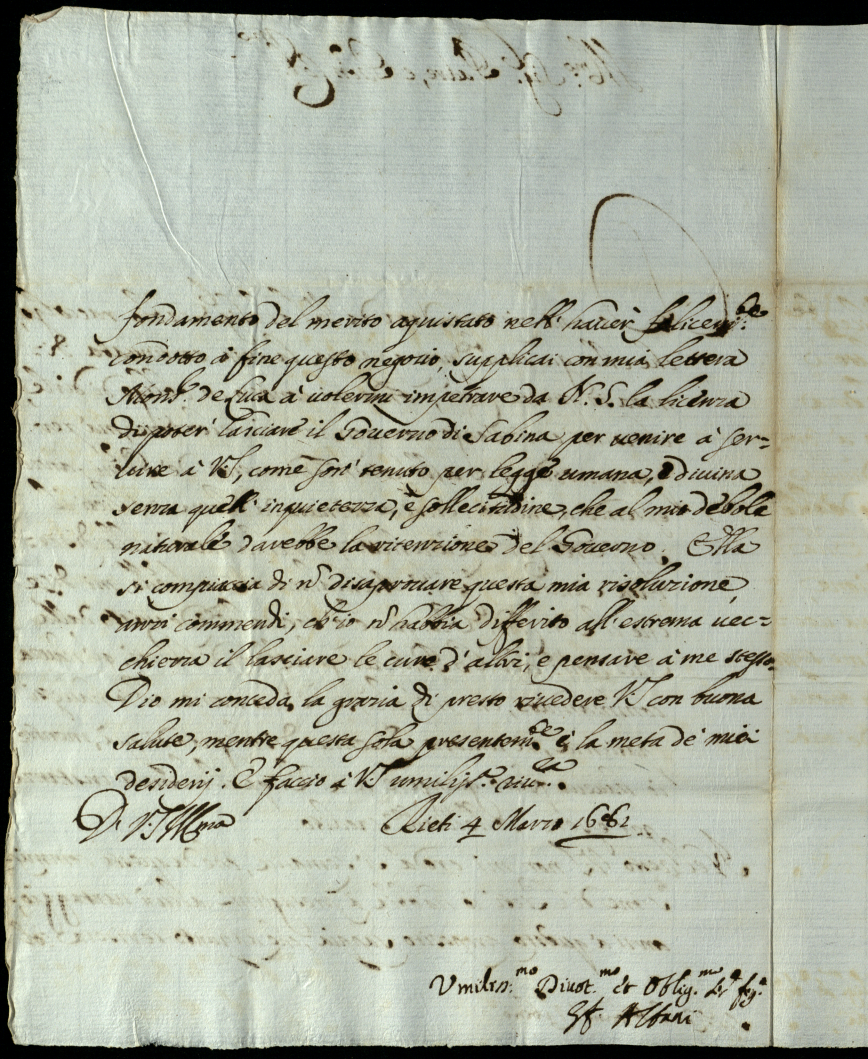 fondamento del merito aquistato nell' hauer felicem:te
condotto à fine questo negozio, supplicai con mia lettera
Mons.r de Luca à uolermi impetrare da N. S. la licenza
di poter lasciare il Gouerno di Sabina per uenire à ser-
uire à V.S, come son' tenuto per legge umana, e diuina
senza quell' inquietezza, e sollecitudine, che al mio debole
naturale darebbe la ritenzione del Gouerno. Ella
si compiaccia di nõ disaprouare questa mia risoluzione
anzi commendi, ch' io nõ habbia differito all' estrema uec-
chiezza il lasciare le cure d' altri, e pensare à me stesso.
Dio mi conceda la grazia di presto riuedere V.S con buona
salute, mentre questa sola presentem.te è la meta de' miei
desiderij. E faccio à V.S umiliss.a riu.za
D. V.S Ill.ma Rieti 4 Marzo 1661
Umiliss.mo Diuot.mo et Oblig.mo
Albani